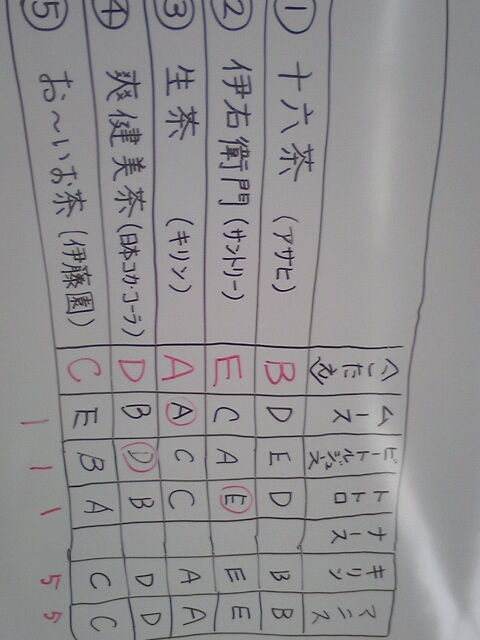 〈こたえ〉 ムース ビートルジュース トトロ ナース キリン マニス
① 十六茶 (アサヒ) B D E D B B
② 伊右衛門 (サントリー) E C A E E E
③ 生茶 (キリン) A A C C A A
④ 爽健美茶 (日本コカ・コーラ) D B D B D D
⑤ お～いお茶 (伊藤園) C E B A C C
1 1 1 5 5